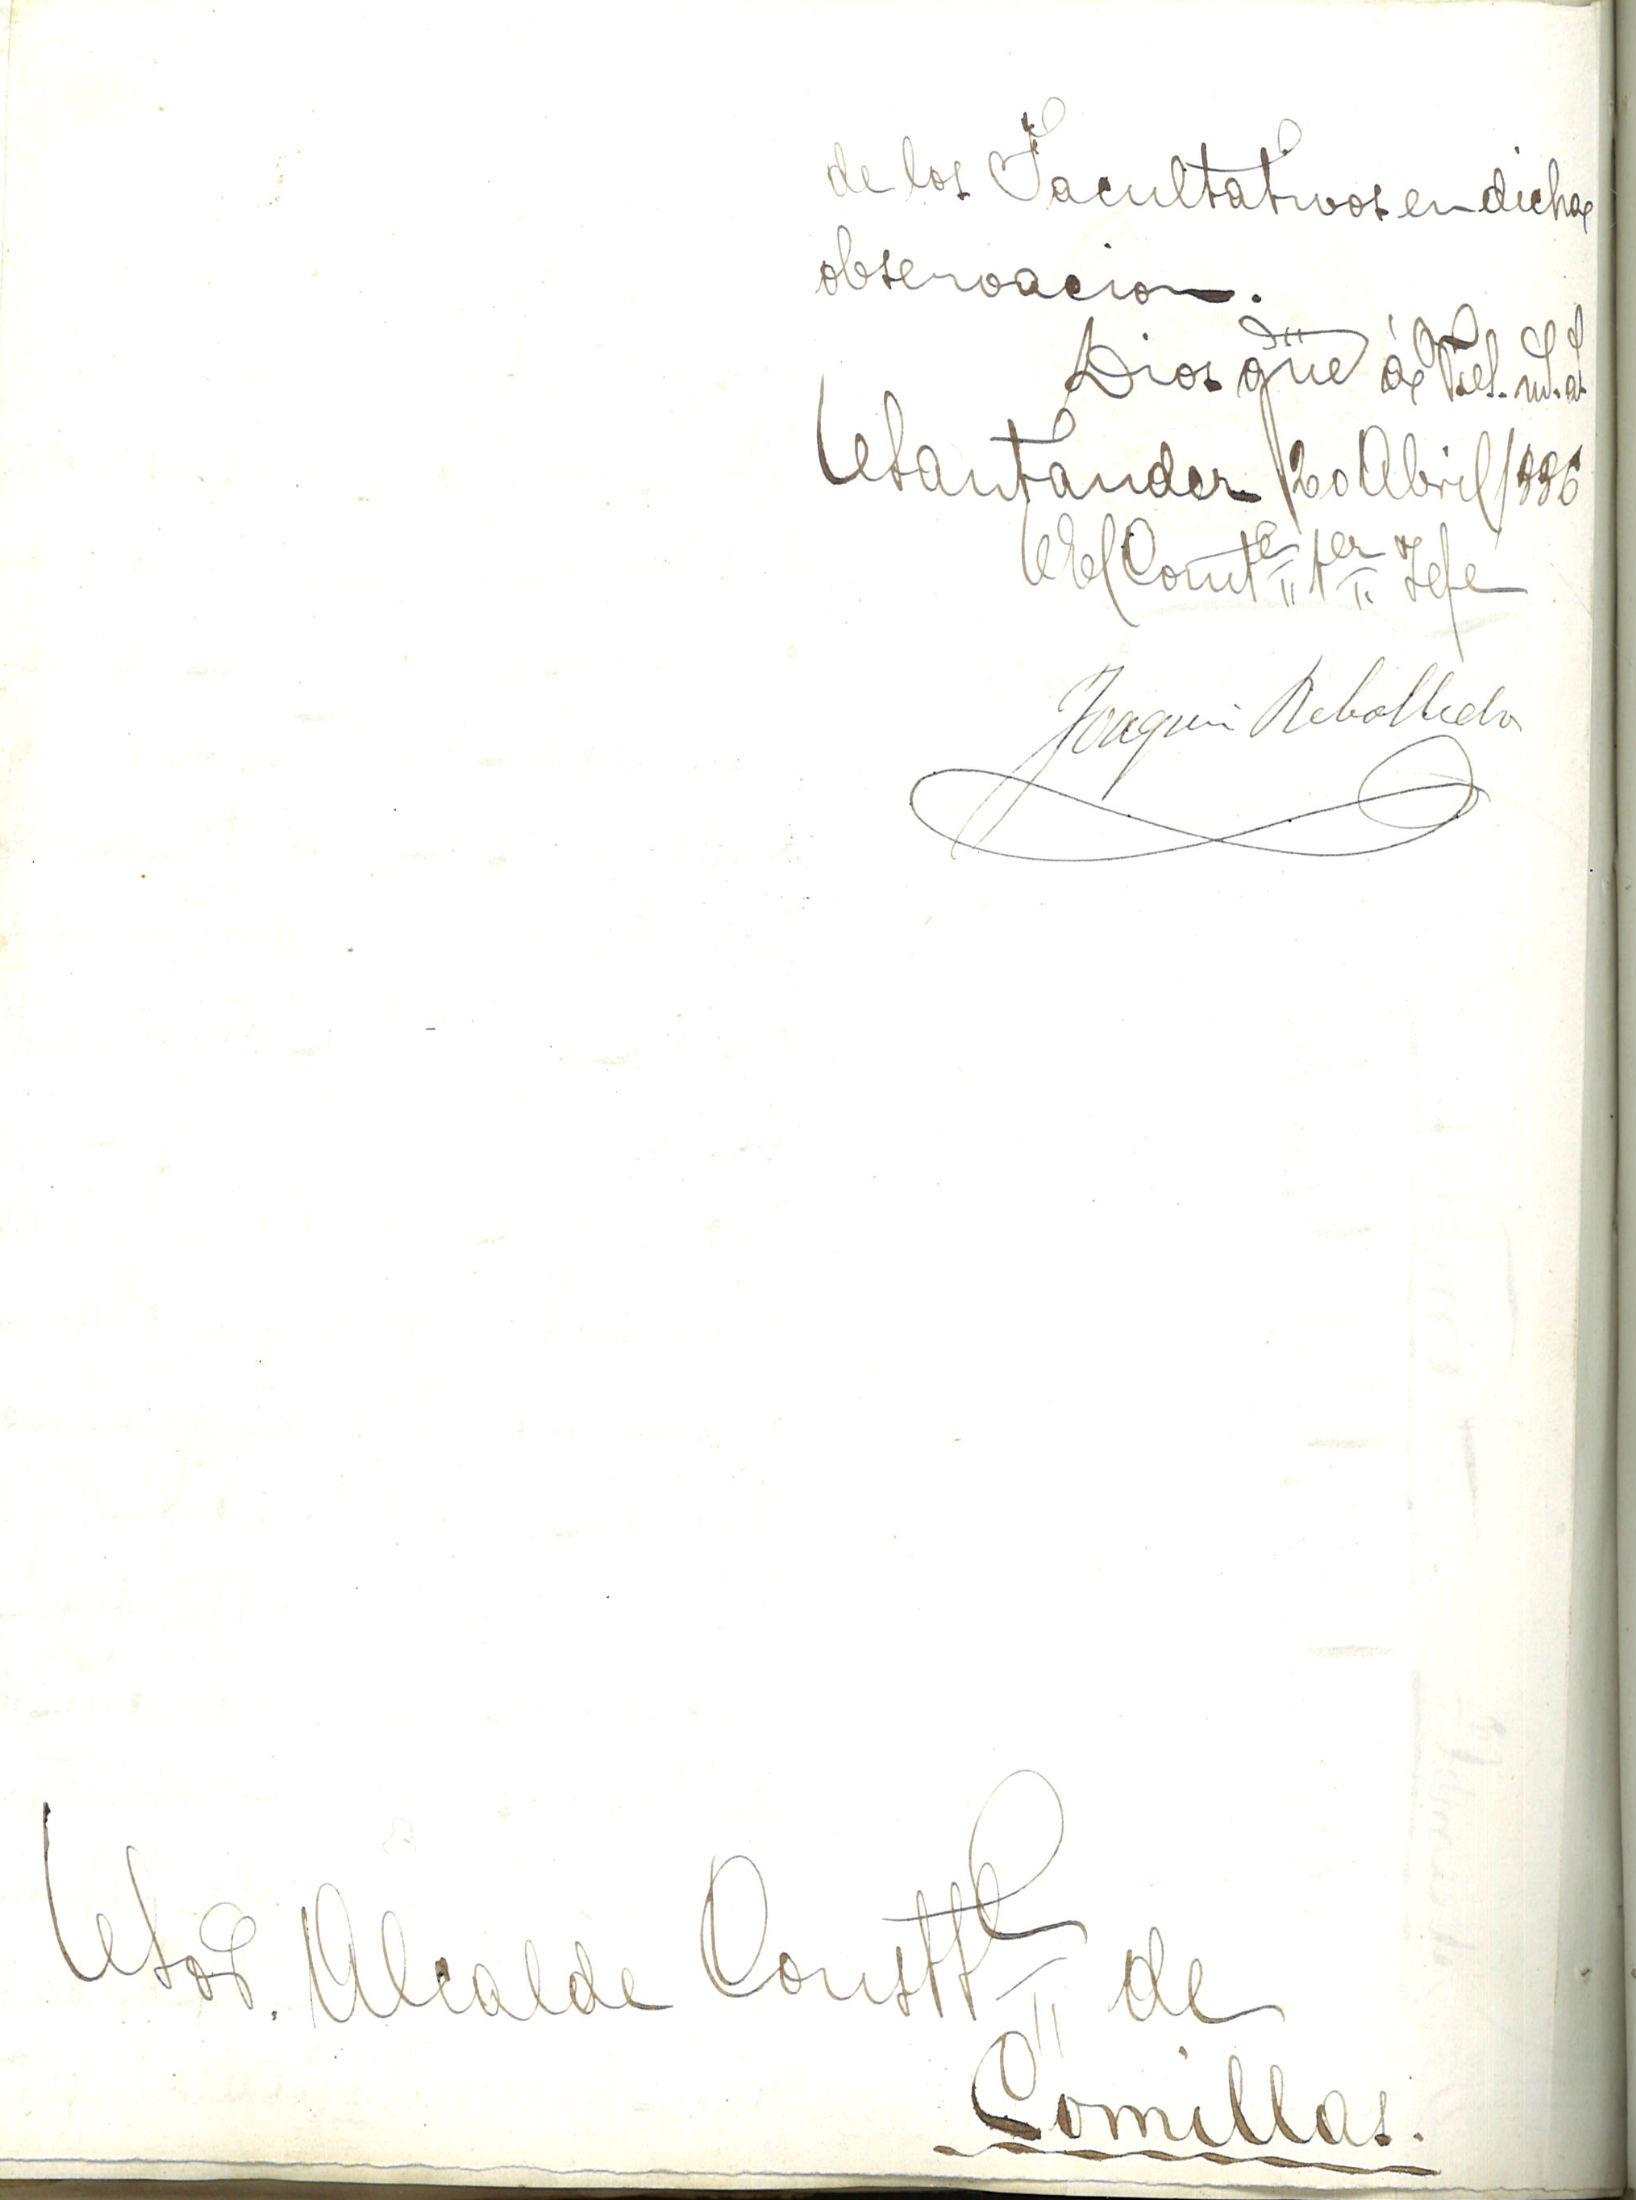 de los Facultativos en dicha
observacion.
Dios gue á V. m. a.
Santander 20 Abril 1886
El Comte 1er Jefe
Joaquin Rebolledo
Sor. Alcalde Consttl de
Comillas.